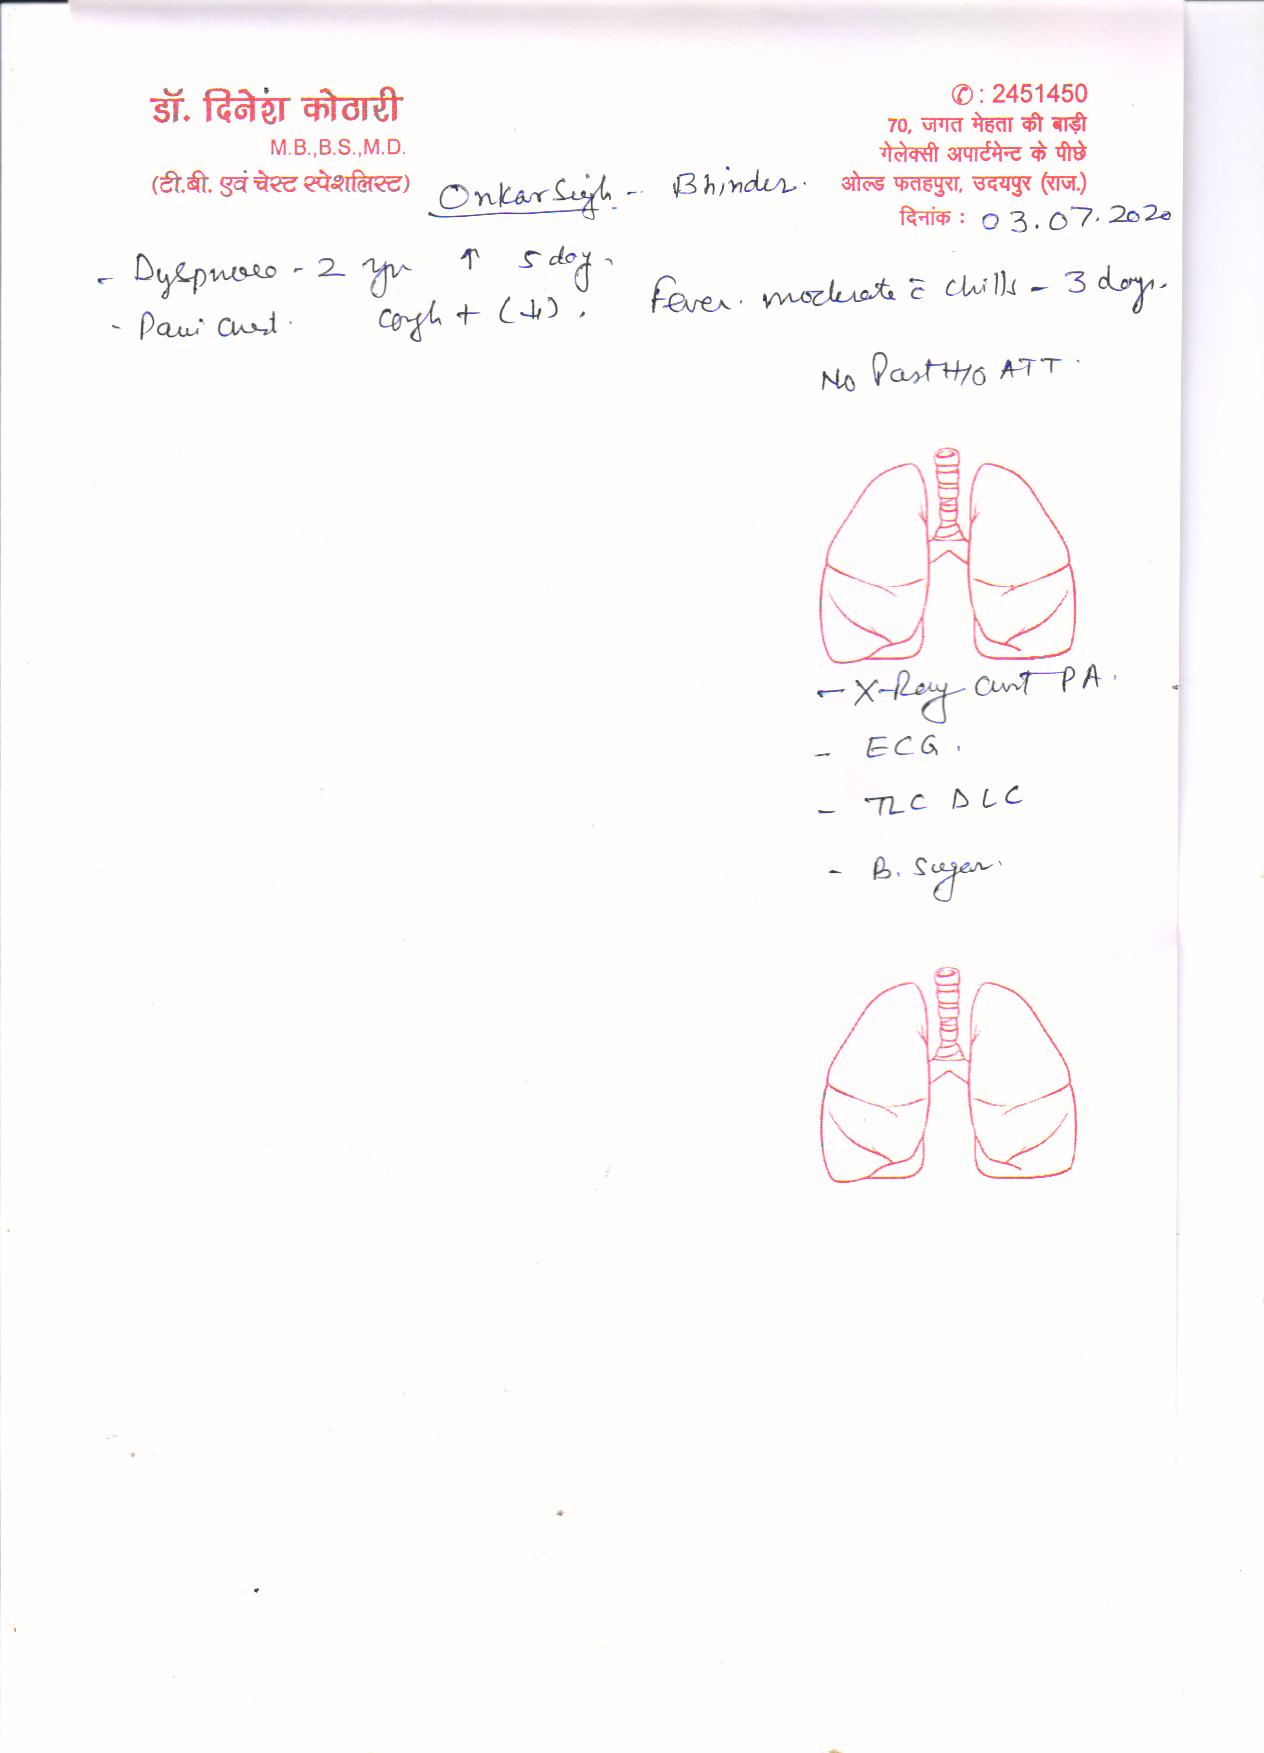 डॉ. दिनेश कोठारी
M.B.,B.S.,M.D.
(टी.बी. एवं चेस्ट स्पेशलिस्ट)
✆ : 2451450
70, जगत मेहता की बाड़ी
गेलेक्सी अपार्टमेन्ट के पीछे
ओल्ड फतहपुरा, उदयपुर (राज.)
दिनांक : 03.07.2020
Onkar Sigh - Bhinder.
- Dyspnoea - 2 yr ↑ 5 day.
- Pain Chest. Cough + (↓).
Fever. moderate c̄ chills - 3 days.
No Past H/O ATT.
- X-Ray Chest PA.
- ECG.
- TLC DLC
- B. Sugar.